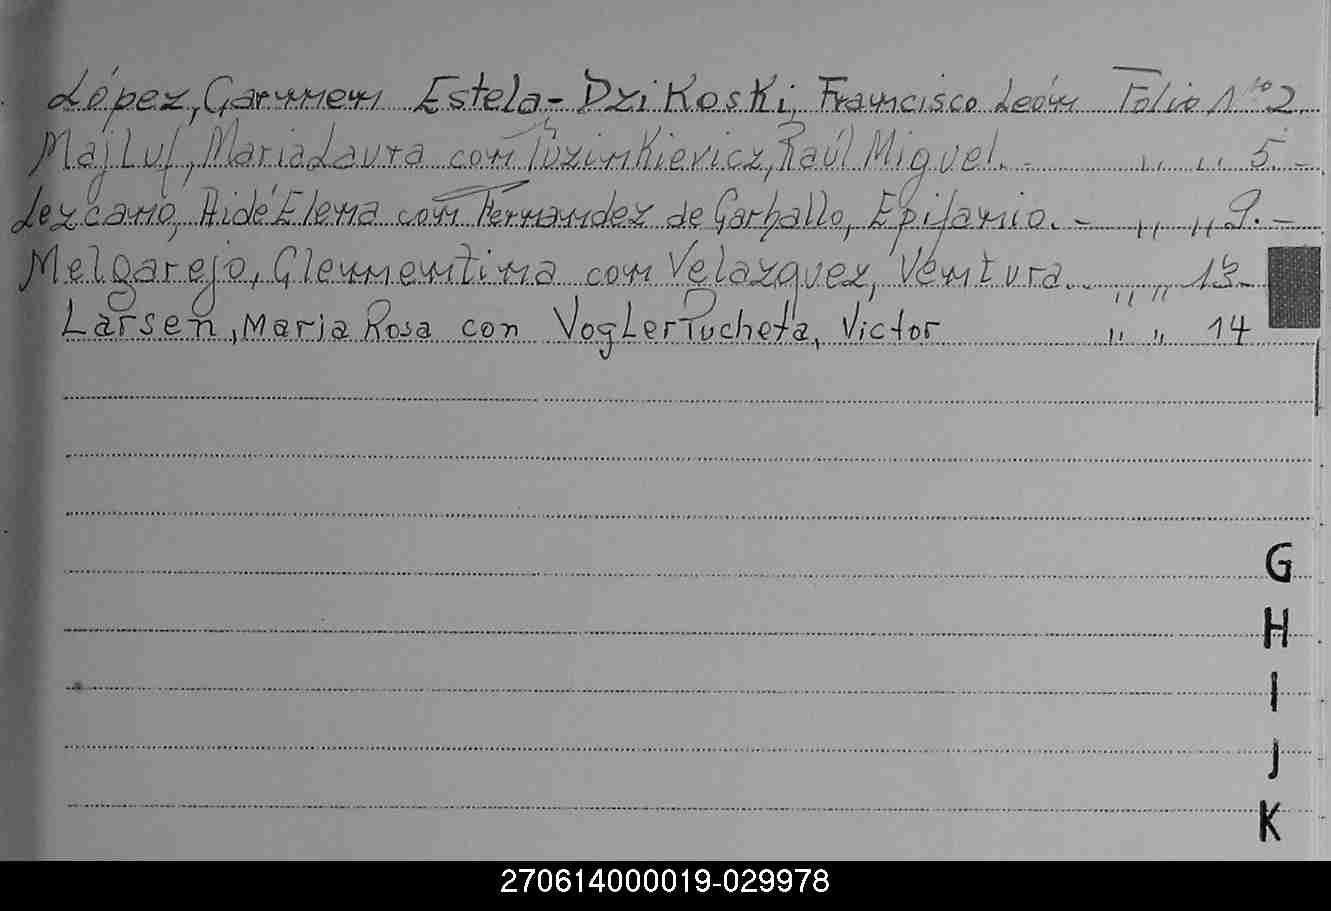 López, Carmen Estela - Dzikoski, Francisco León Folio Nº 2.
Majluf, Maria Laura con Tuzinkievicz, Raúl Miguel. - " " 5. -
Lezcano, Aidé Elena con Fernandez de Carballo, Epifanio. - " " 9. -
Melgarejo, Clementina con Velazquez, Ventura. . " " 13 -
Larsen, Maria Rosa con Vogler Pucheta, Victor " " 14
G
H
I
J
K
270614000019-029978